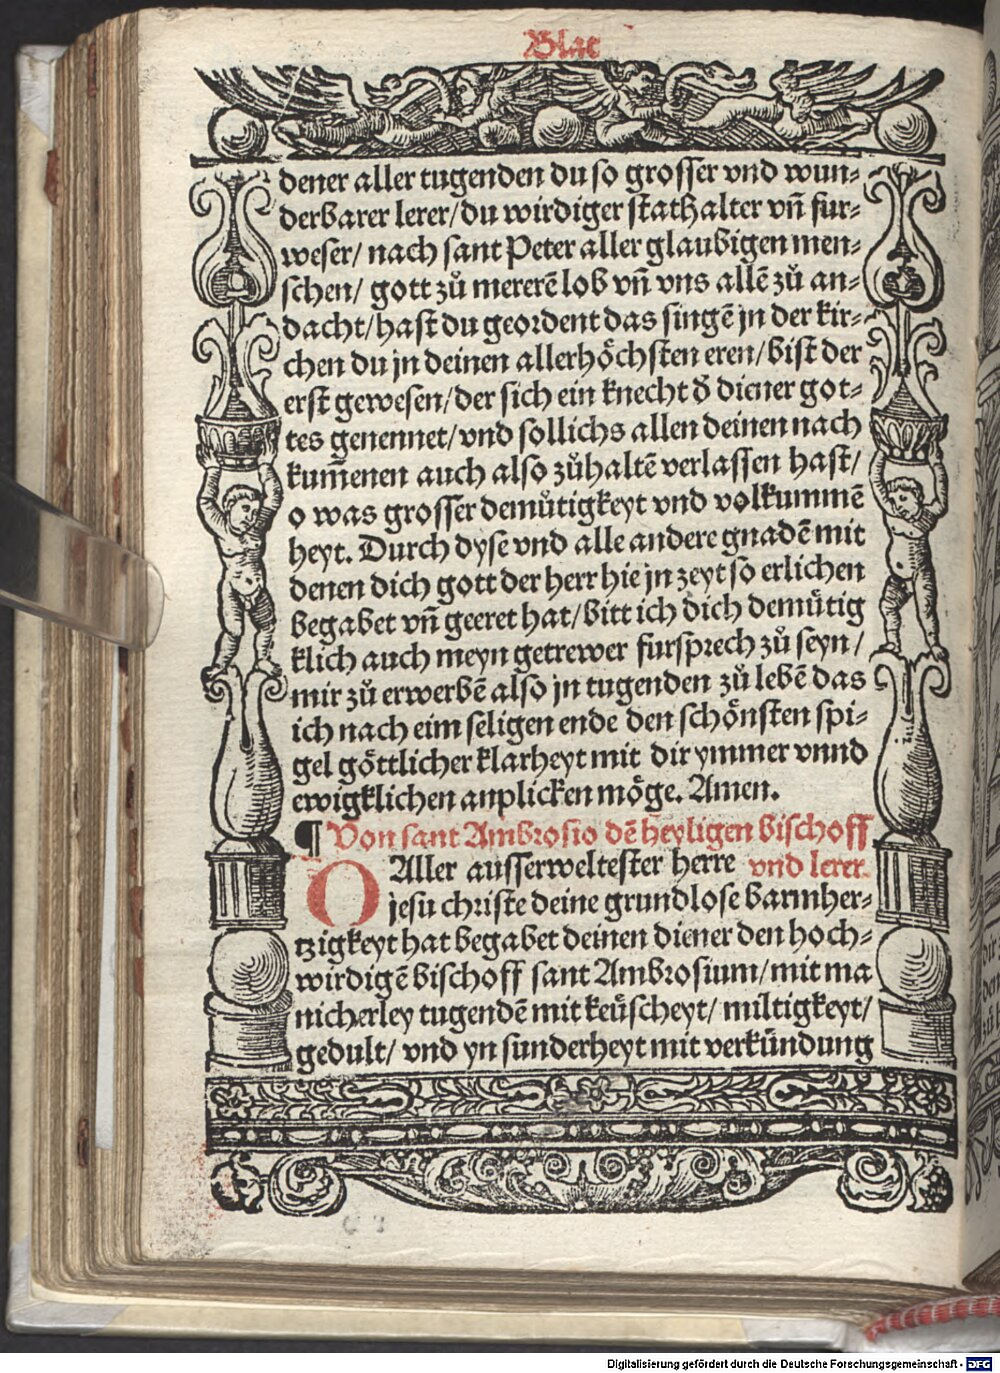 Blat
dener aller tugenden du so grosser vnd wun-
derbarer lerer/ du wirdiger stathalter vn̄ fur-
weser/ nach sant Peter aller glaubigen men-
schen/ gott zů mererē lob vn̄ vns allē zů an-
dacht/ hast du geordent das singē jn der kir-
chen du jn deinen allerhöchsten eren/ bist der
erst gewesen/ der sich ein knecht d̄ diener got-
tes genennet/ vnd sollichs allen deinen nach
kum̄enen auch also zůhaltē verlassen hast/
o was grosser demůtigkeyt vnd volkummē
heyt. Durch dyse vnd alle andere gnadē mit
denen dich gott der herr hie jn zeyt so erlichen
begabet vn̄ geeret hat/ bitt ich dich demůtig
klich auch meyn getrewer fursprech zů seyn/
mir zů erwerbē also jn tugenden zů lebē das
ich nach eim seligen ende den schönsten spi-
gel göttlicher klarheyt mit dir ymmer vnnd
ewigklichen anplicken möge. Amen.
¶ Von sant Ambrosio dē heyligen bischoff
vnd lerer.
O Aller ausserweltester herre
jesu christe deine grundlose barmher-
tzigkeyt hat begabet deinen diener den hoch-
wirdigē bischoff sant Ambrosium/ mit ma
nicherley tugendē mit keüscheyt/ miltigkeyt/
gedult/ vnd yn sunderheyt mit verkündung
Digitalisierung gefördert durch die Deutsche Forschungsgemeinschaft - DFG